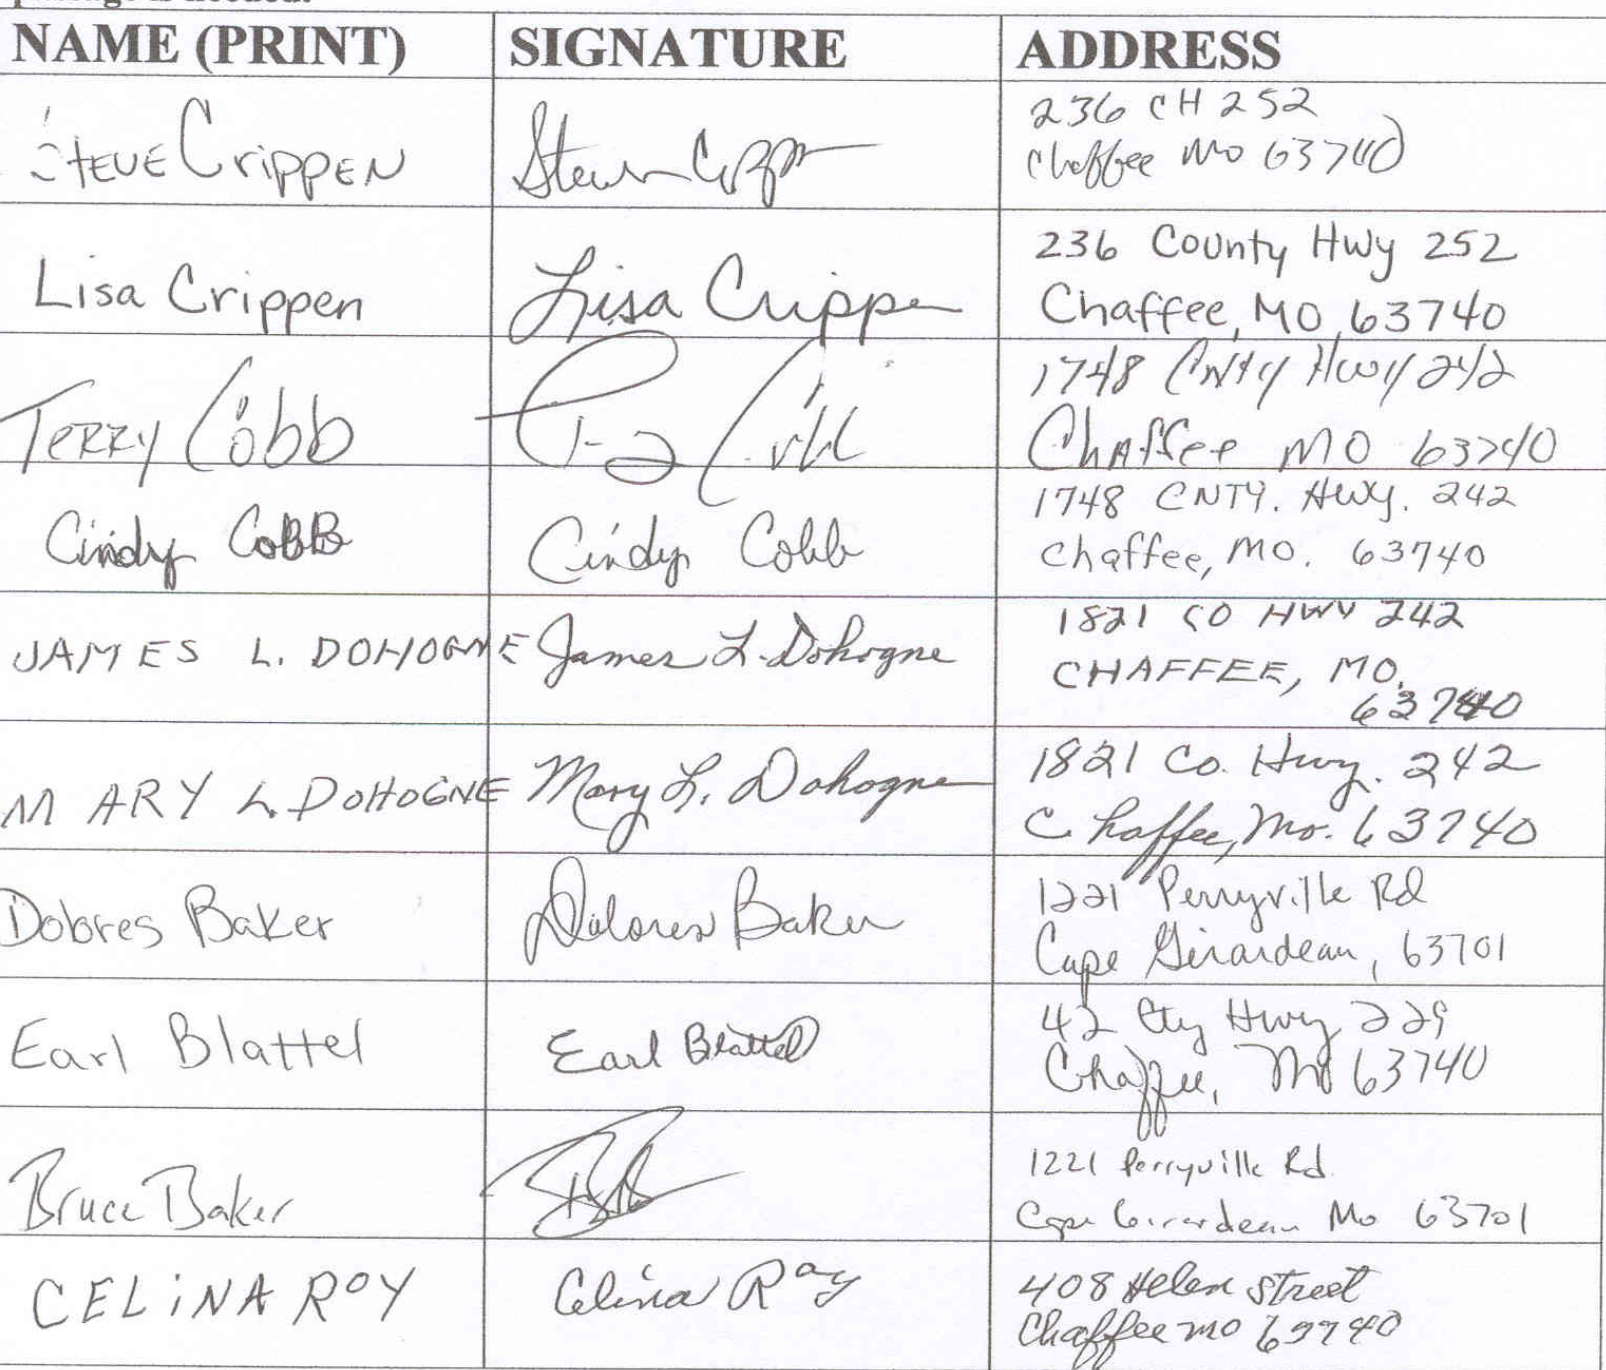 NAME (PRINT) SIGNATURE ADDRESS
STEVE CrippEN Steven Crippen 236 CH 252
Chaffee Mo 63740
Lisa Crippen Lisa Crippen 236 County Hwy 252
Chaffee, MO 63740
TERRY Cobb 1748 CNTY Hwy 242
Chaffee MO 63740
Cindy CoBB Cindy Cobb 1748 CNTY. Hwy. 242
Chaffee, MO. 63740
JAMES L. DOHOGNE James L. Dohogne 1821 CO HWY 242
CHAFFEE, MO.
63740
MARY L. DOHOGNE Mary L. Dohogne 1821 Co. Hwy. 242
Chaffee, Mo. 63740
Dolores Baker Dolores Baker 1221 Perryville Rd
Cape Girardeau, 63701
Earl Blattel Earl Blattel 42 Cty Hwy 229
Chaffee, Mo 63740
Bruce Baker 1221 Perryville Rd.
Cape Girardeau Mo 63701
CELiNA ROY Celina Roy 408 Helen Street
Chaffee mo 63740